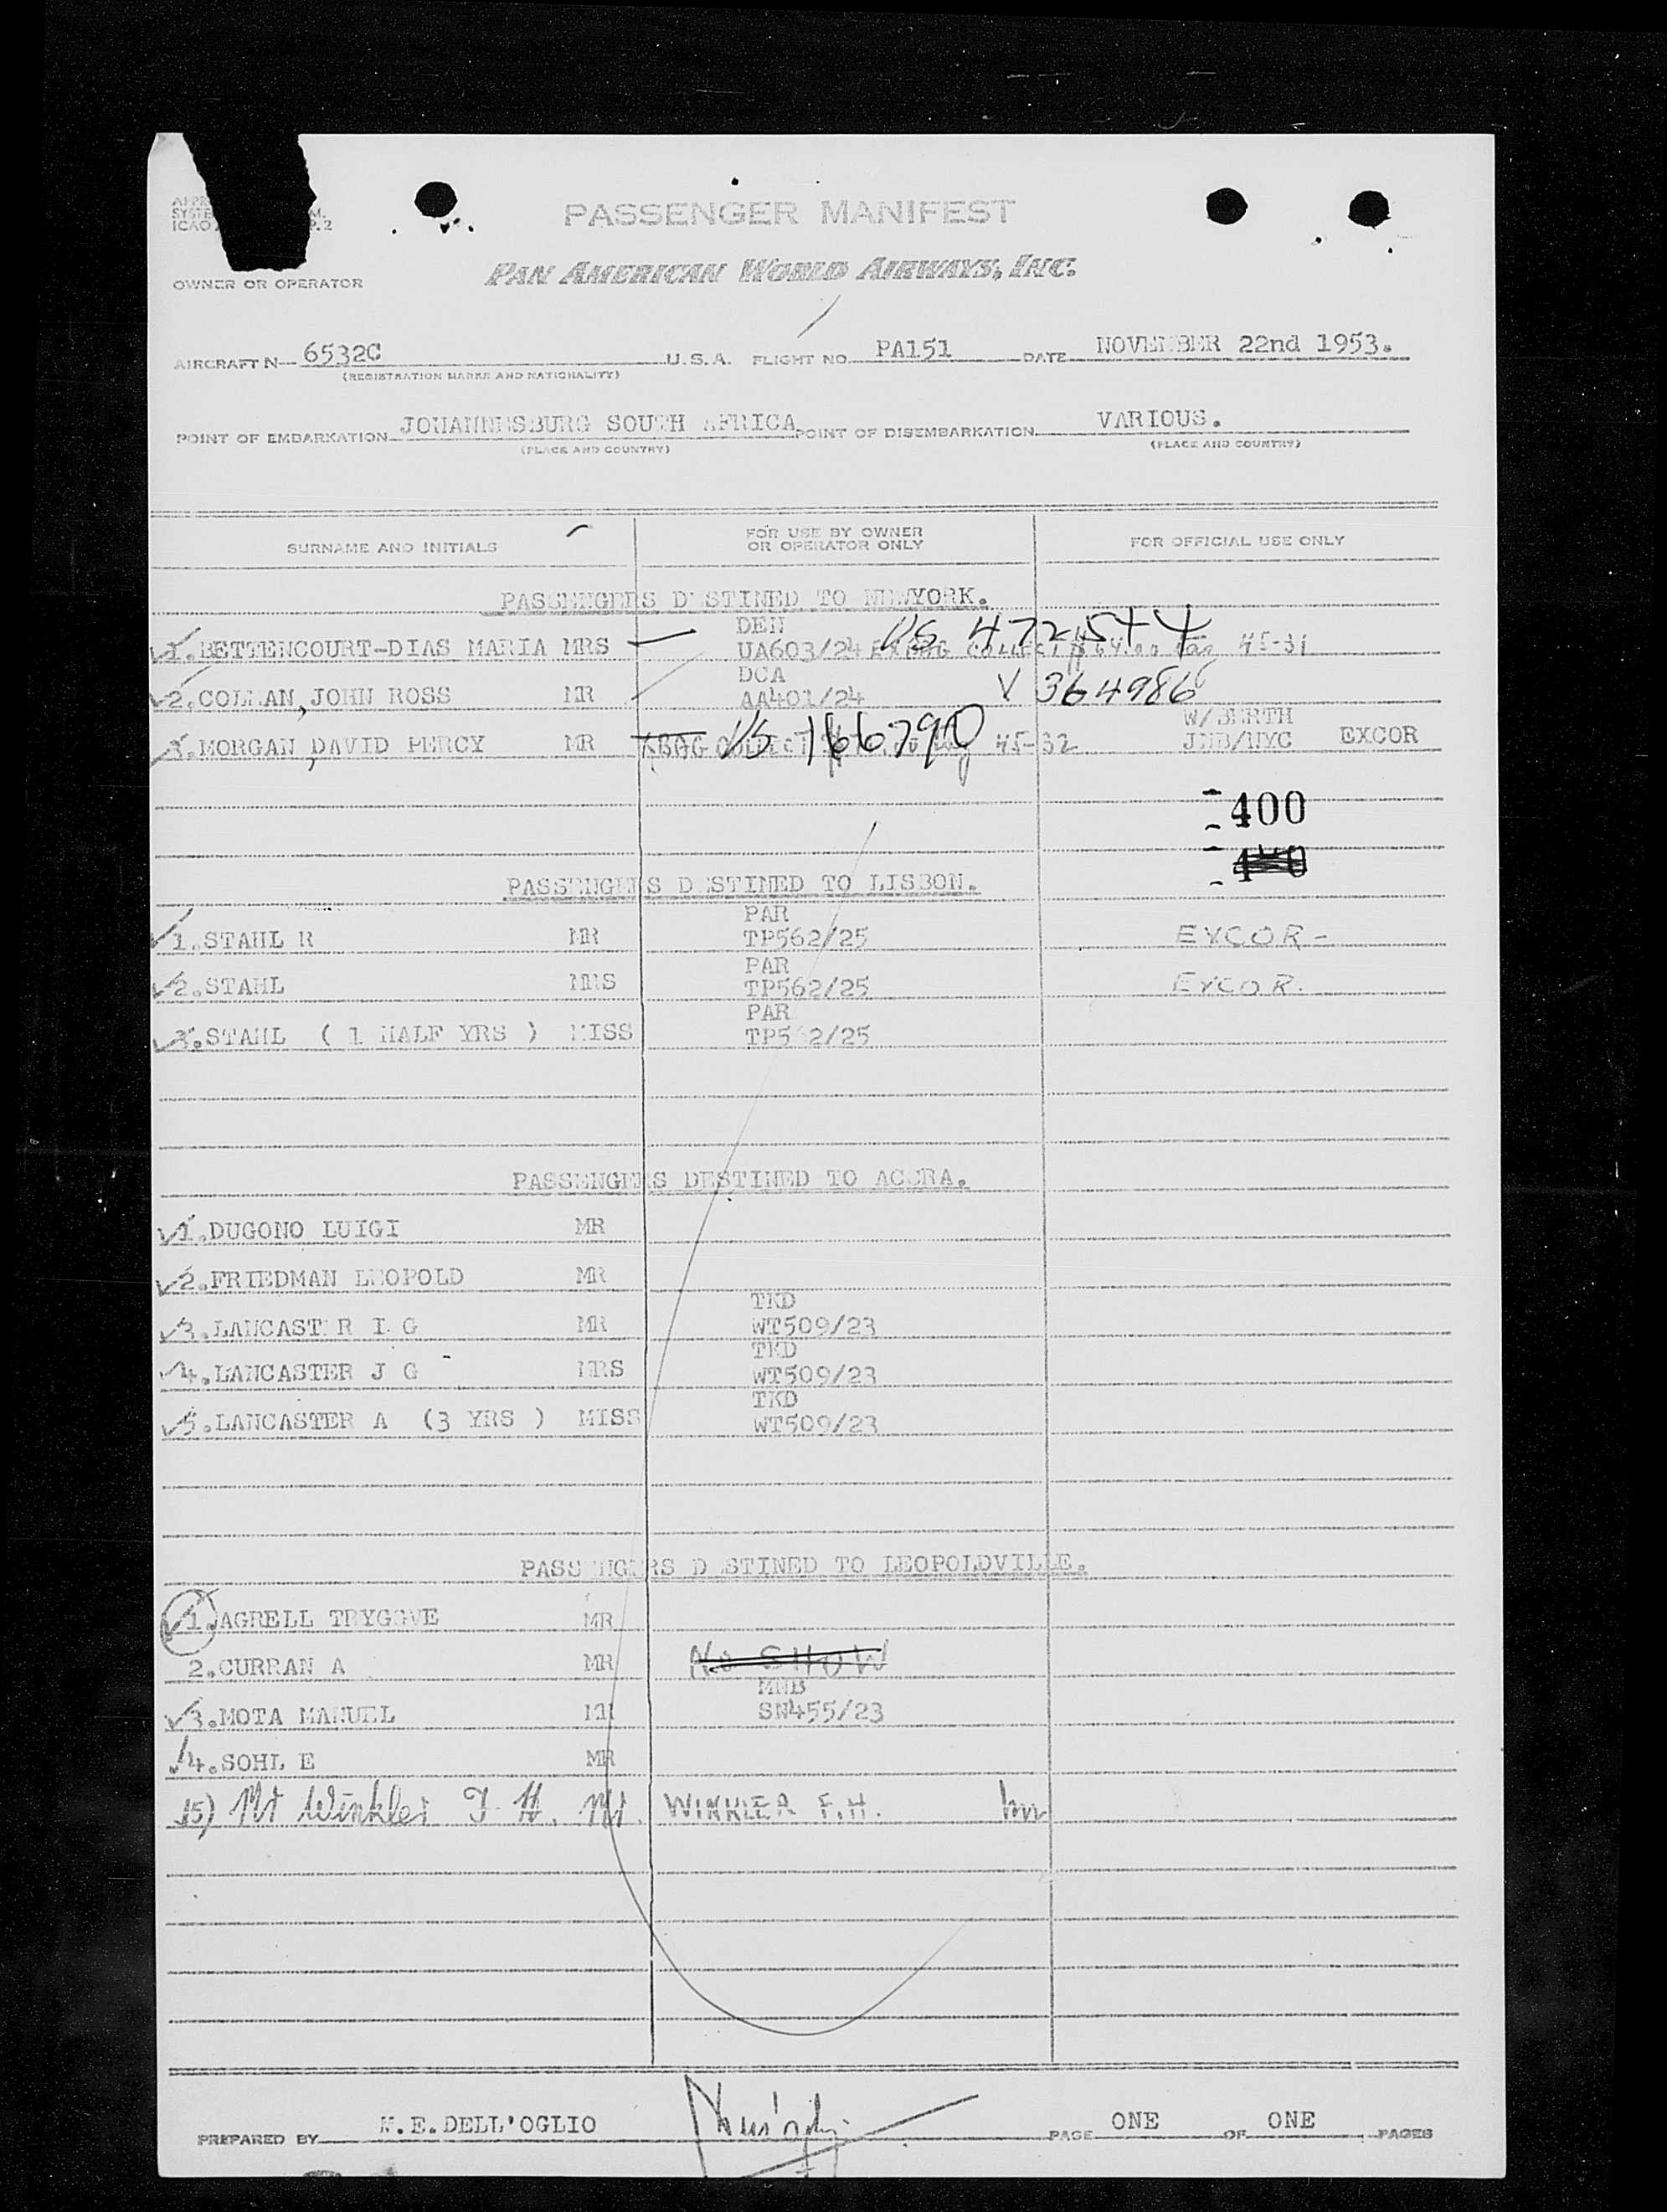 PASSENGER MANIFEST
OWNER OR OPERATOR
PAN AMERICAN WORLD AIRWAYS, INC.
AIRCRAFT N 6532C U.S.A. FLIGHT NO. PA151 DATE NOVEMBER 22nd 1953.
(REGISTRATION MARKS AND NATIONALITY)
POINT OF EMBARKATION JOHANNESBURG SOUTH AFRICA POINT OF DISEMBARKATION VARIOUS.
(PLACE AND COUNTRY) (PLACE AND COUNTRY)
SURNAME AND INITIALS FOR USE BY OWNER OR OPERATOR ONLY FOR OFFICIAL USE ONLY
PASSENGERS DESTINED TO NEWYORK.
DEN
1.BETTENCOURT-DIAS MARIA MRS UA603/24 COLLECT 45-31
DCA
2.COLMAN, JOHN ROSS MR AA401/24 V 364986
W/BERTH
3.MORGAN, DAVID PERCY MR COLLECT 45-32 JNB/NYC EXCOR
400
PASSENGERS DESTINED TO LISBON.
PAR
1.STAHL R MR TP562/25 EXCOR-
PAR
2.STAHL MRS TP562/25 EXCOR.
PAR
3.STAHL ( 1 HALF YRS ) MISS TP562/25
PASSENGERS DESTINED TO ACCRA.
1.DUGONO LUIGI MR
2.FRIEDMAN LEOPOLD MR
TKD
3.LANCASTER I G MR WT509/23
TKD
4.LANCASTER J G MRS WT509/23
TKD
5.LANCASTER A (3 YRS ) MISS WT509/23
PASSENGERS DESTINED TO LEOPOLDVILLE.
1.AGRELL TRYGGVE MR
2.CURRAN A MR No SHOW
MNB
3.MOTA MANUEL MR SN455/23
4.SOHL E MR
5) Mr Winkler F. H. Mr. WINKLER F.H.
PREPARED BY M.E.DELL'OGLIO PAGE ONE OF ONE PAGES